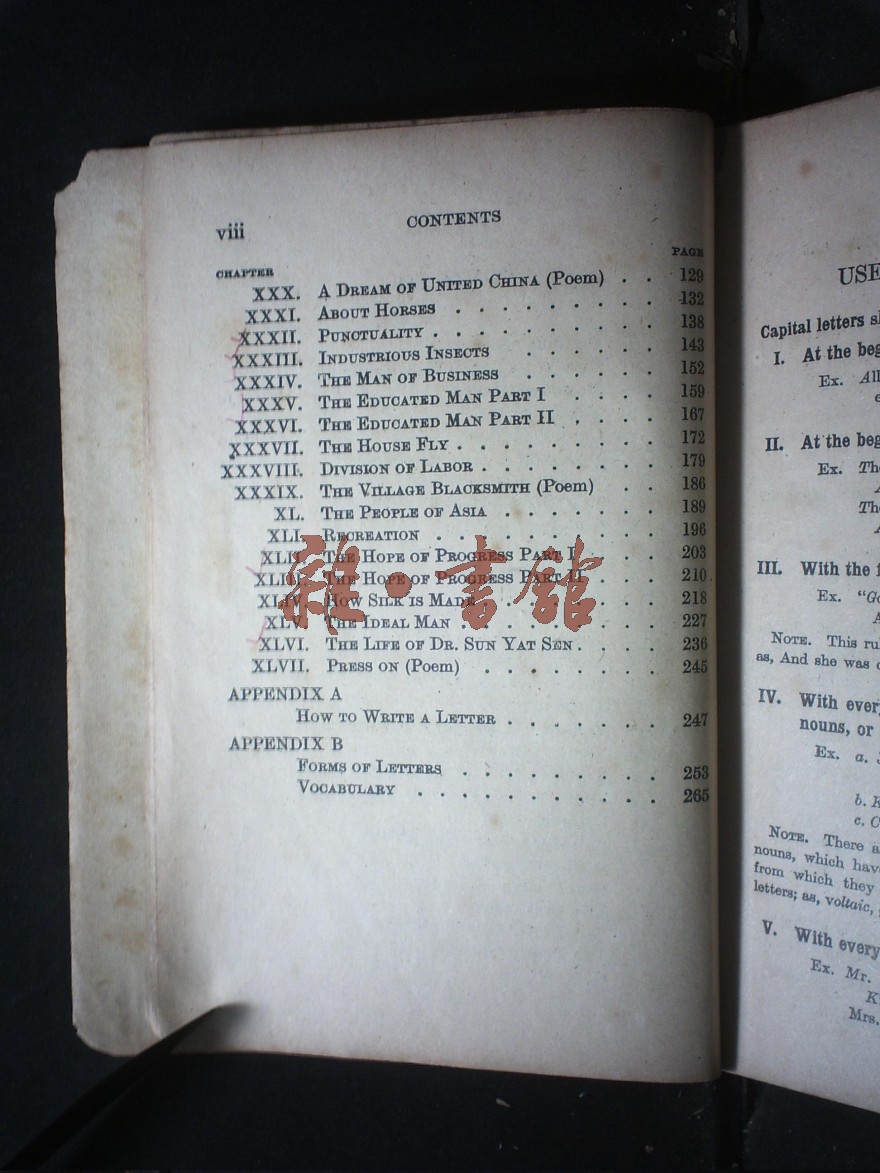 viii
CONTENTS
CHAPTER PAGE
XXX. A DREAM OF UNITED CHINA (Poem) . . 129
XXXI. ABOUT HORSES . . . . . . . . . 132
XXXII. PUNCTUALITY . . . . . . . . . . 138
XXXIII. INDUSTRIOUS INSECTS . . . . . . 143
XXXIV. THE MAN OF BUSINESS . . . . . . 152
XXXV. THE EDUCATED MAN PART I . . . . 159
XXXVI. THE EDUCATED MAN PART II . . . . 167
XXXVII. THE HOUSE FLY . . . . . . . . . 172
XXXVIII. DIVISION OF LABOR . . . . . . . . 179
XXXIX. THE VILLAGE BLACKSMITH (Poem) . . 186
XL. THE PEOPLE OF ASIA . . . . . . . 189
XLI. RECREATION . . . . . . . . . . 196
XLII. THE HOPE OF PROGRESS PART I . . . 203
XLIII. THE HOPE OF PROGRESS PART II . . . 210
XLIV. HOW SILK IS MADE . . . . . . . . 218
XLV. THE IDEAL MAN . . . . . . . . . 227
XLVI. THE LIFE OF DR. SUN YAT SEN . . . . 236
XLVII. PRESS ON (Poem) . . . . . . . . 245
APPENDIX A
HOW TO WRITE A LETTER . . . . . . 247
APPENDIX B
FORMS OF LETTERS . . . . . . . . 253
VOCABULARY . . . . . . . . . . 265
雜·書館
USE
Capital letters
I. At the beg
Ex. All
II. At the beg
Ex. Th
Th
III. With the
Ex. "Go
NOTE. This ru
as, And she was
IV. With every
nouns, or
Ex. a.
b. K
c. C
NOTE. There a
nouns, which hav
from which they
letters; as, voltaic,
V. With every
Ex. Mr.
K
Mrs.